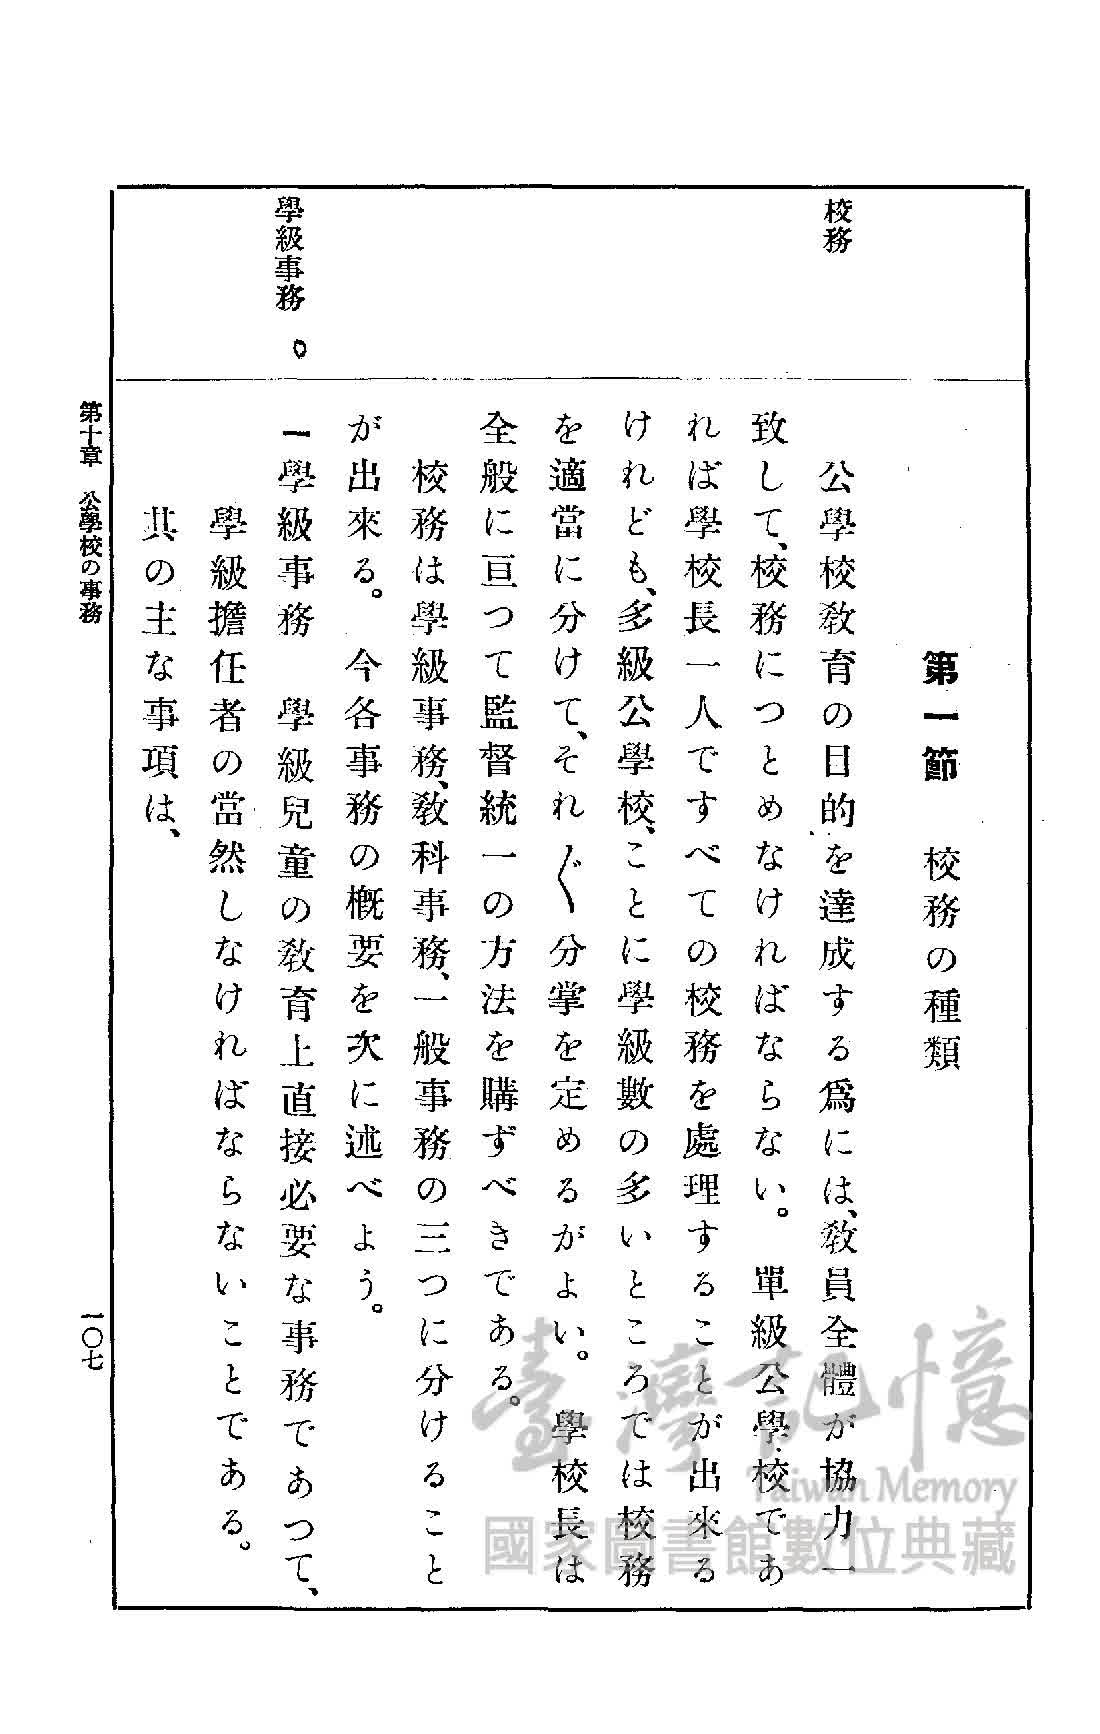 第一節　校務の種類
校務
公學校敎育の目的を達成する爲には、敎員全體が協力一
致して、校務につとめなければならない。單級公學校であ
れば學校長一人ですべての校務を處理することが出來る
けれども、多級公學校、ことに學級數の多いところでは校務
を適當に分けて、それ〴〵分掌を定めるがよい。學校長は
全般に亘つて監督統一の方法を購ずべきである。
校務は學級事務、敎科事務、一般事務の三つに分けること
が出來る。今各事務の概要を次に述べよう。
學級事務
一學級事務　學級兒童の敎育上直接必要な事務であつて、
學級擔任者の當然しなければならないことである。
其の主な事項は、
第十章　公學校の事務
一〇七
臺灣記憶
Taiwan Memory
國家圖書館數位典藏